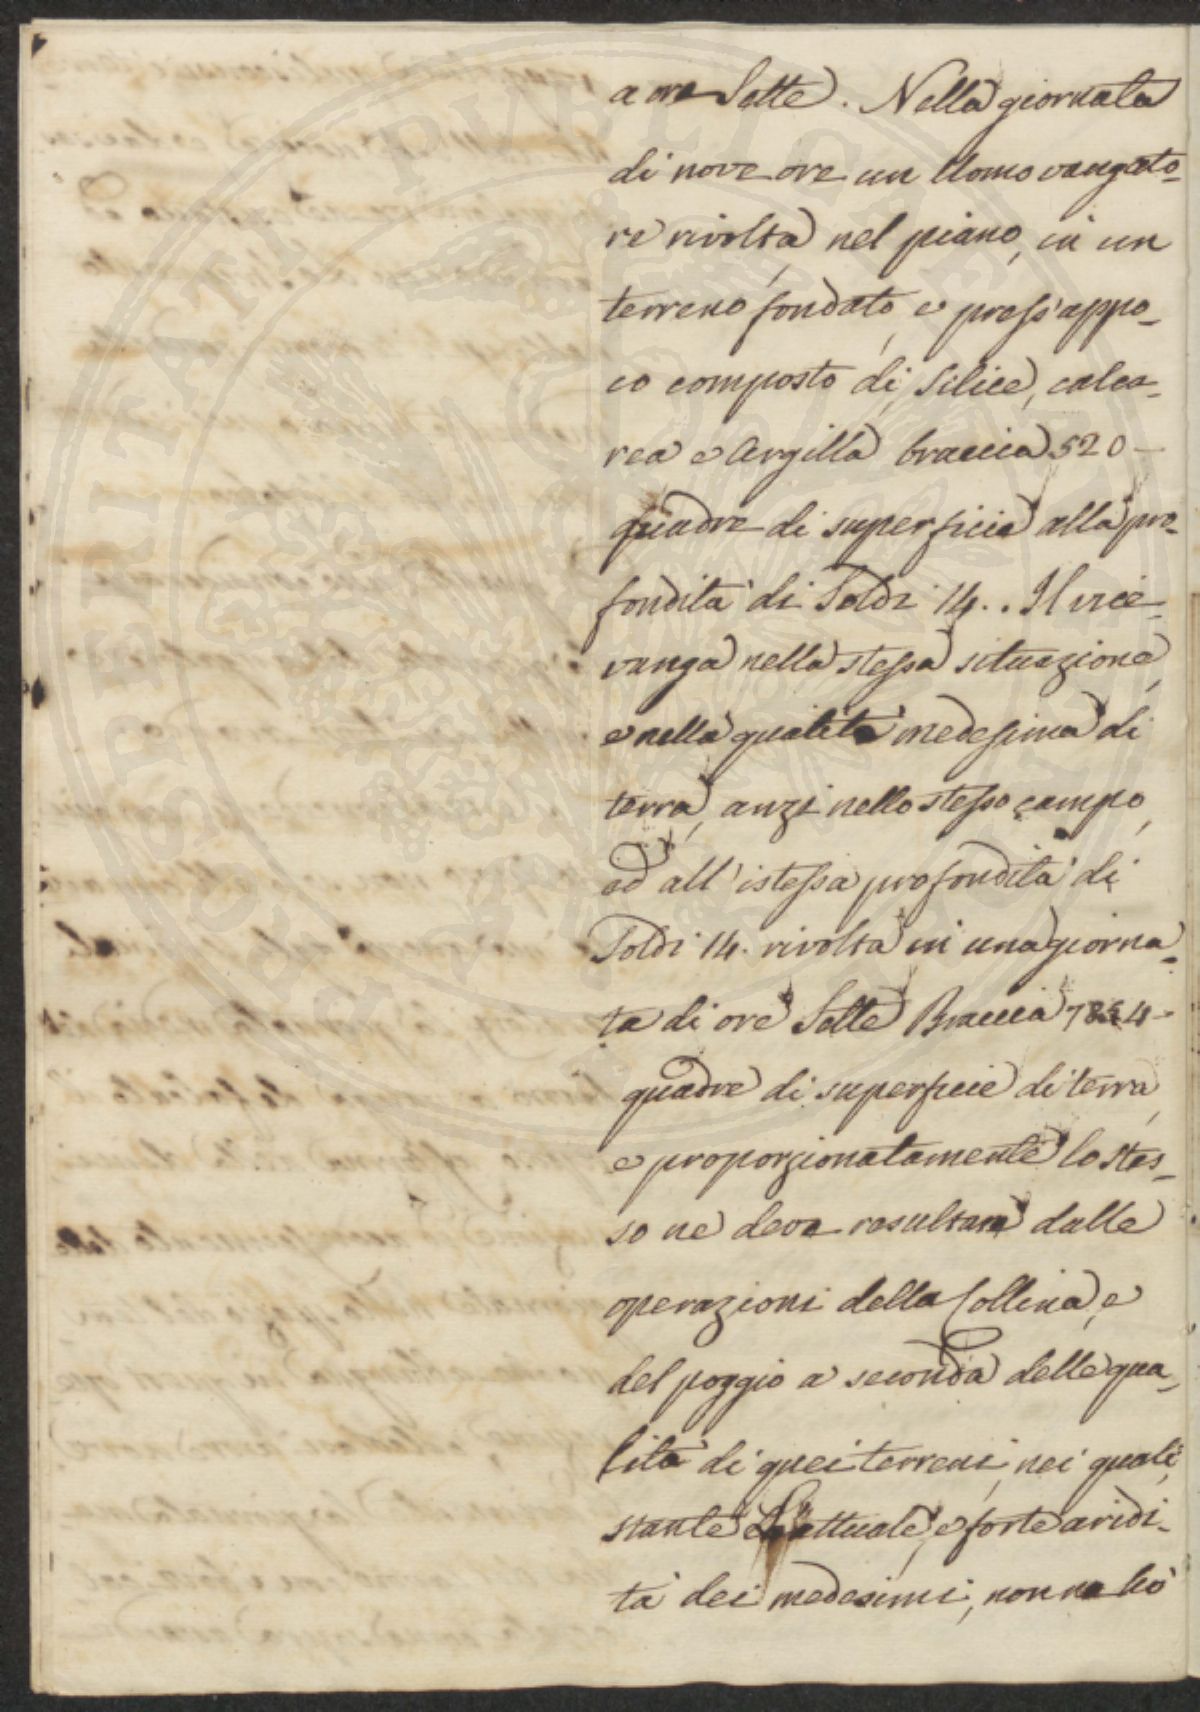 a ore Sette. Nella giornata
di nove ore un Uomo vangato-
re rivolta nel piano, in un
terreno fondato, e press'appo-
co composto di Silice, calca-
rea e Argilla braccia 520 -
quadre di superficie alla pro-
fondità di Soldi 14.. Il vice-
vanga nella stessa situazione,
e nella qualità medesima di
terra, anzi nello stesso campo,
ed all'istessa profondità di
Soldi 14. rivolta in una giorna-
ta di ore Sette Braccia
quadre di superficie di terra,
e proporzionatamente lo stes-
so ne deve resultare dalle
operazioni della Collina, e
del poggio a seconda delle qua-
lità di quei terreni, nei quali,
stante l'attuale, e forte aridi-
tà dei medesimi, non ne hò
PROSPERITATI PUBLICAE AUGENDAE